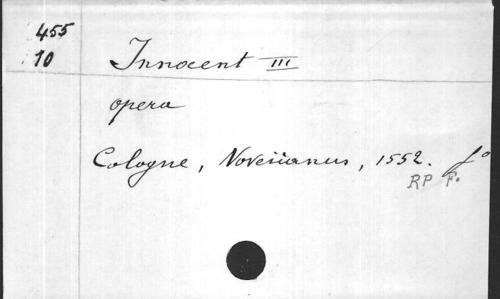 455
10
Innocent III
opera
Cologne, Novesianus, 1552. fo
RP F.